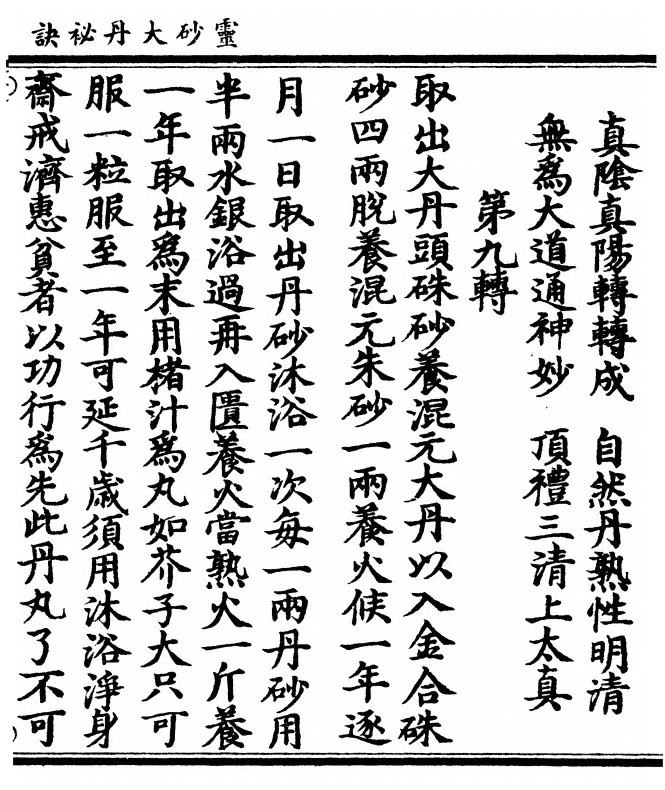 靈砂大丹祕訣
真陰真陽轉轉成　自然丹熟性明清
無爲大道通神妙　頂禮三清上太真
第九轉
取出大丹頭硃砂養混元大丹以入金合硃
砂四兩脫養混元朱砂一兩養火候一年逐
月一日取出丹砂沐浴一次每一兩丹砂用
半兩水銀浴過再入匱養火當熟火一斤養
一年取出爲末用楮汁爲丸如芥子大只可
服一粒服至一年可延千歲須用沐浴淨身
齋戒濟惠貧者以功行爲先此丹丸了不可